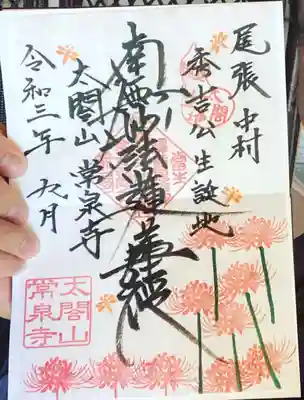 尾張中村
秀吉公生誕地
南無妙法蓮華経
太閤山 常泉寺
令和三年 九月
太閤山
常泉寺